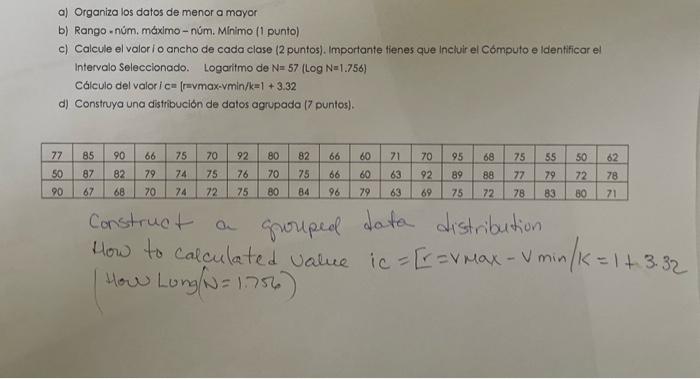 a) Organiza los datos de menor a mayor
b) Rango = núm. máximo – núm. Mínimo (1 punto)
c) Calcule el valor i o ancho de cada clase (2 puntos). Importante tienes que Incluir el Cómputo e Identificar el
Intervalo Seleccionado. Logaritmo de N= 57 (Log N=1.756)
Cálculo del valor i c= [r=vmax-vmin/k=1 + 3.32
d) Construya una distribución de datos agrupada (7 puntos).
77 85 90 66 75 70 92 80 82 66 60 71 70 95 68 75 55 50 62
50 87 82 79 74 75 76 70 75 66 60 63 92 89 88 77 79 72 78
90 67 68 70 74 72 75 80 84 96 79 63 69 75 72 78 83 80 71
Construct a grouped data distribution
How to calculated value ic = [r = v Max - v min/k = 1 + 3.32
(How Long(N = 1.756)